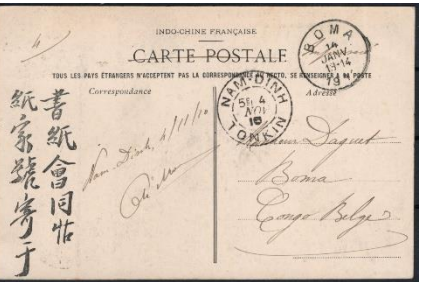 4
INDO-CHINE FRANÇAISE
CARTE POSTALE
TOUS LES PAYS ÉTRANGERS N'ACCEPTENT PAS LA CORRESPONDANCE AU RECTO, SE RENSEIGNER A LA POSTE
BOMA
14
JANV
13-14
19
Correspondance
Adresse
NAM-DINH
4
NOV
10
TONKIN
書紙會同
紙家號寄于
Nam-Dinh, 4/11/10
Monsieur Daquet
Boma
Congo Belge